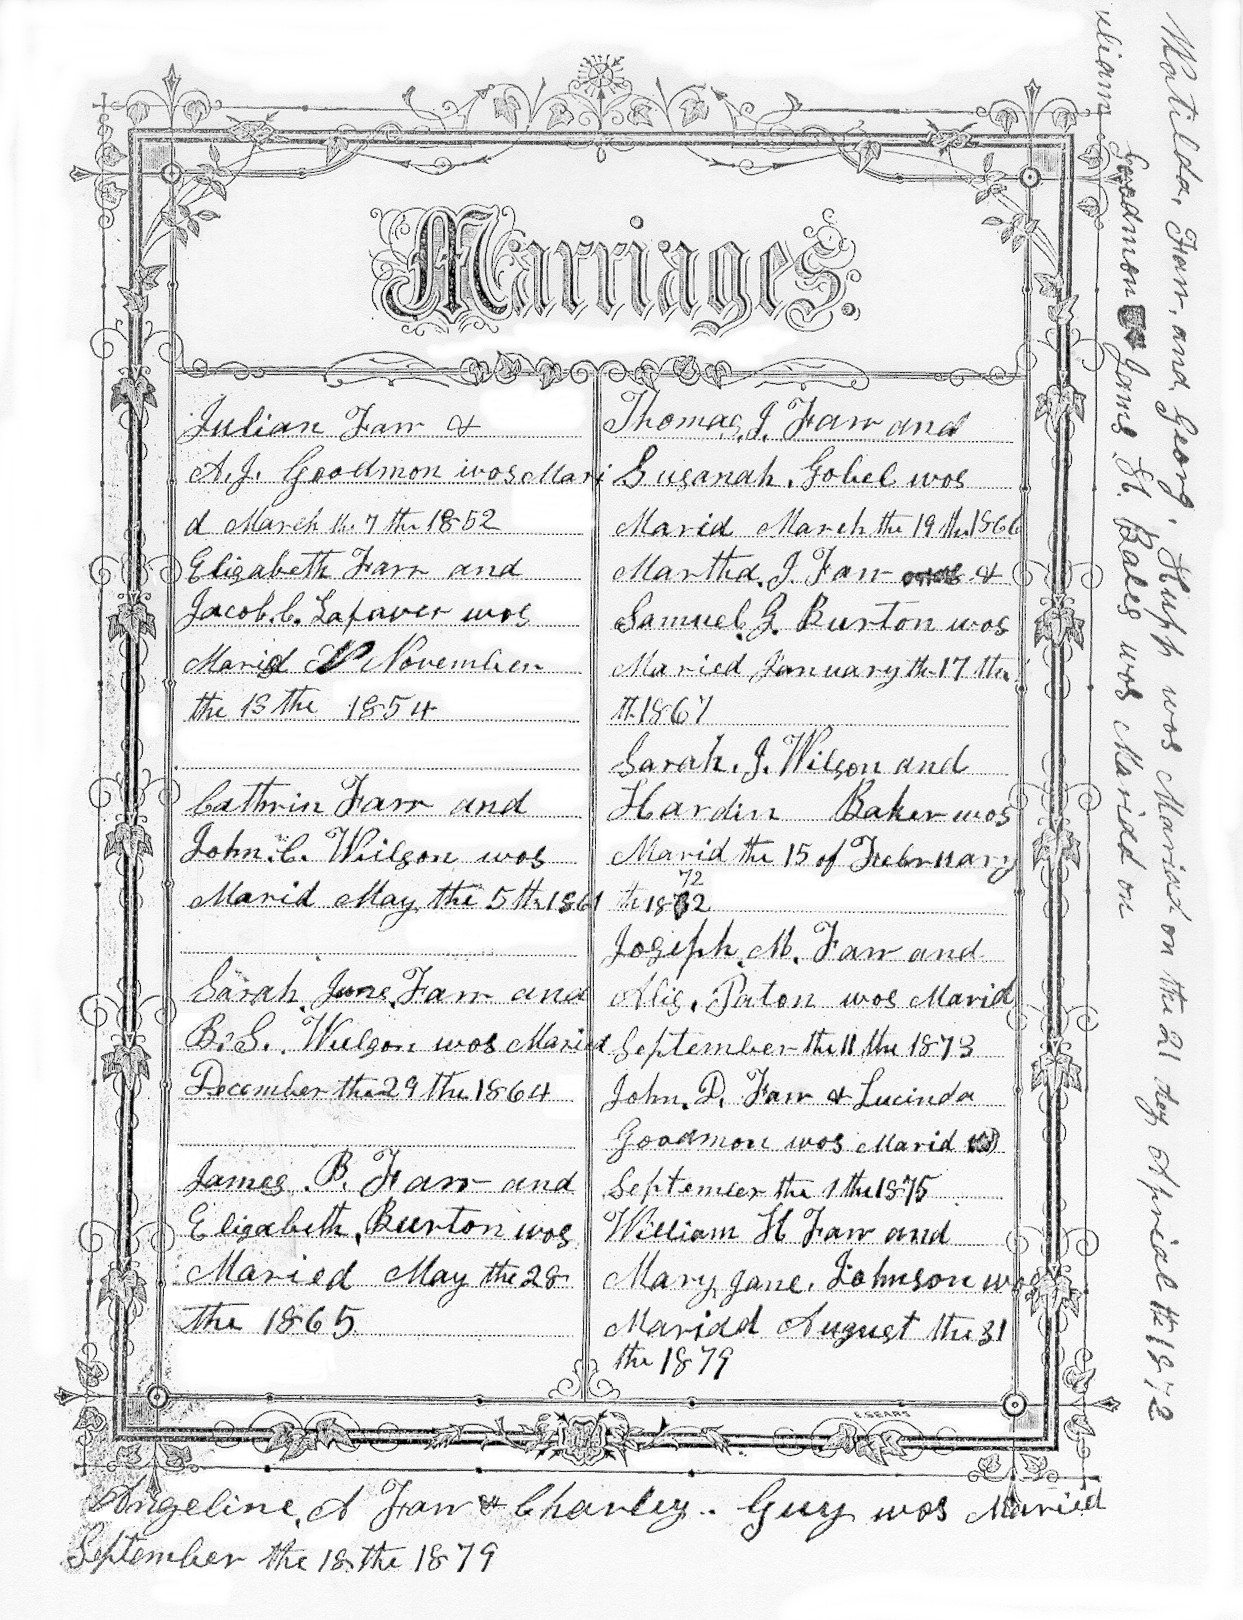 Marriages.
Julian Farr &
A. J. Goodmon wos Mari
d March th 7 the 1852
Elizabeth Farr and
Jacob. C. Lafaver wos
Marid November
the 13 the 1854
Cathrin Farr and
John. C. Willson wos
Marid May the 5 th 1861
Sarah Jane Farr and
B. S. Willson wos Maried
December the 29 the 1864
James. B. Farr and
Elizabeth, Burton wos
Maried May the 28
the 1865
Thomas, J. Farr and
Susanah. Gobel wos
Marid March the 19 th 1866
Martha. J. Farr &
Samuel. G. Burton wos
Maried January th 17 the
th 1867
Sarah. J. Wilson and
Hardin Baker wos
Marid the 15 of Februuary
72
th 1872
Joseph. M. Farr and
Alis. Paton wos Marid
September the 11 the 1873
John. D. Farr & Lucinda
Goodmon wos Marid
Septemeer the 1 the 1875
William H Farr and
Mary Jane. Johnson wos
Maridd August the 31
the 1879
E. SEARS
Angeline. A Farr & Charley.. Guy wos Maried
September the 18 the 1879
Matilda, Farr, and Georg. Huph wos Maried on the 21 day Apriel the 1872
uliann Goodmon James H. Bales wos Maridd on